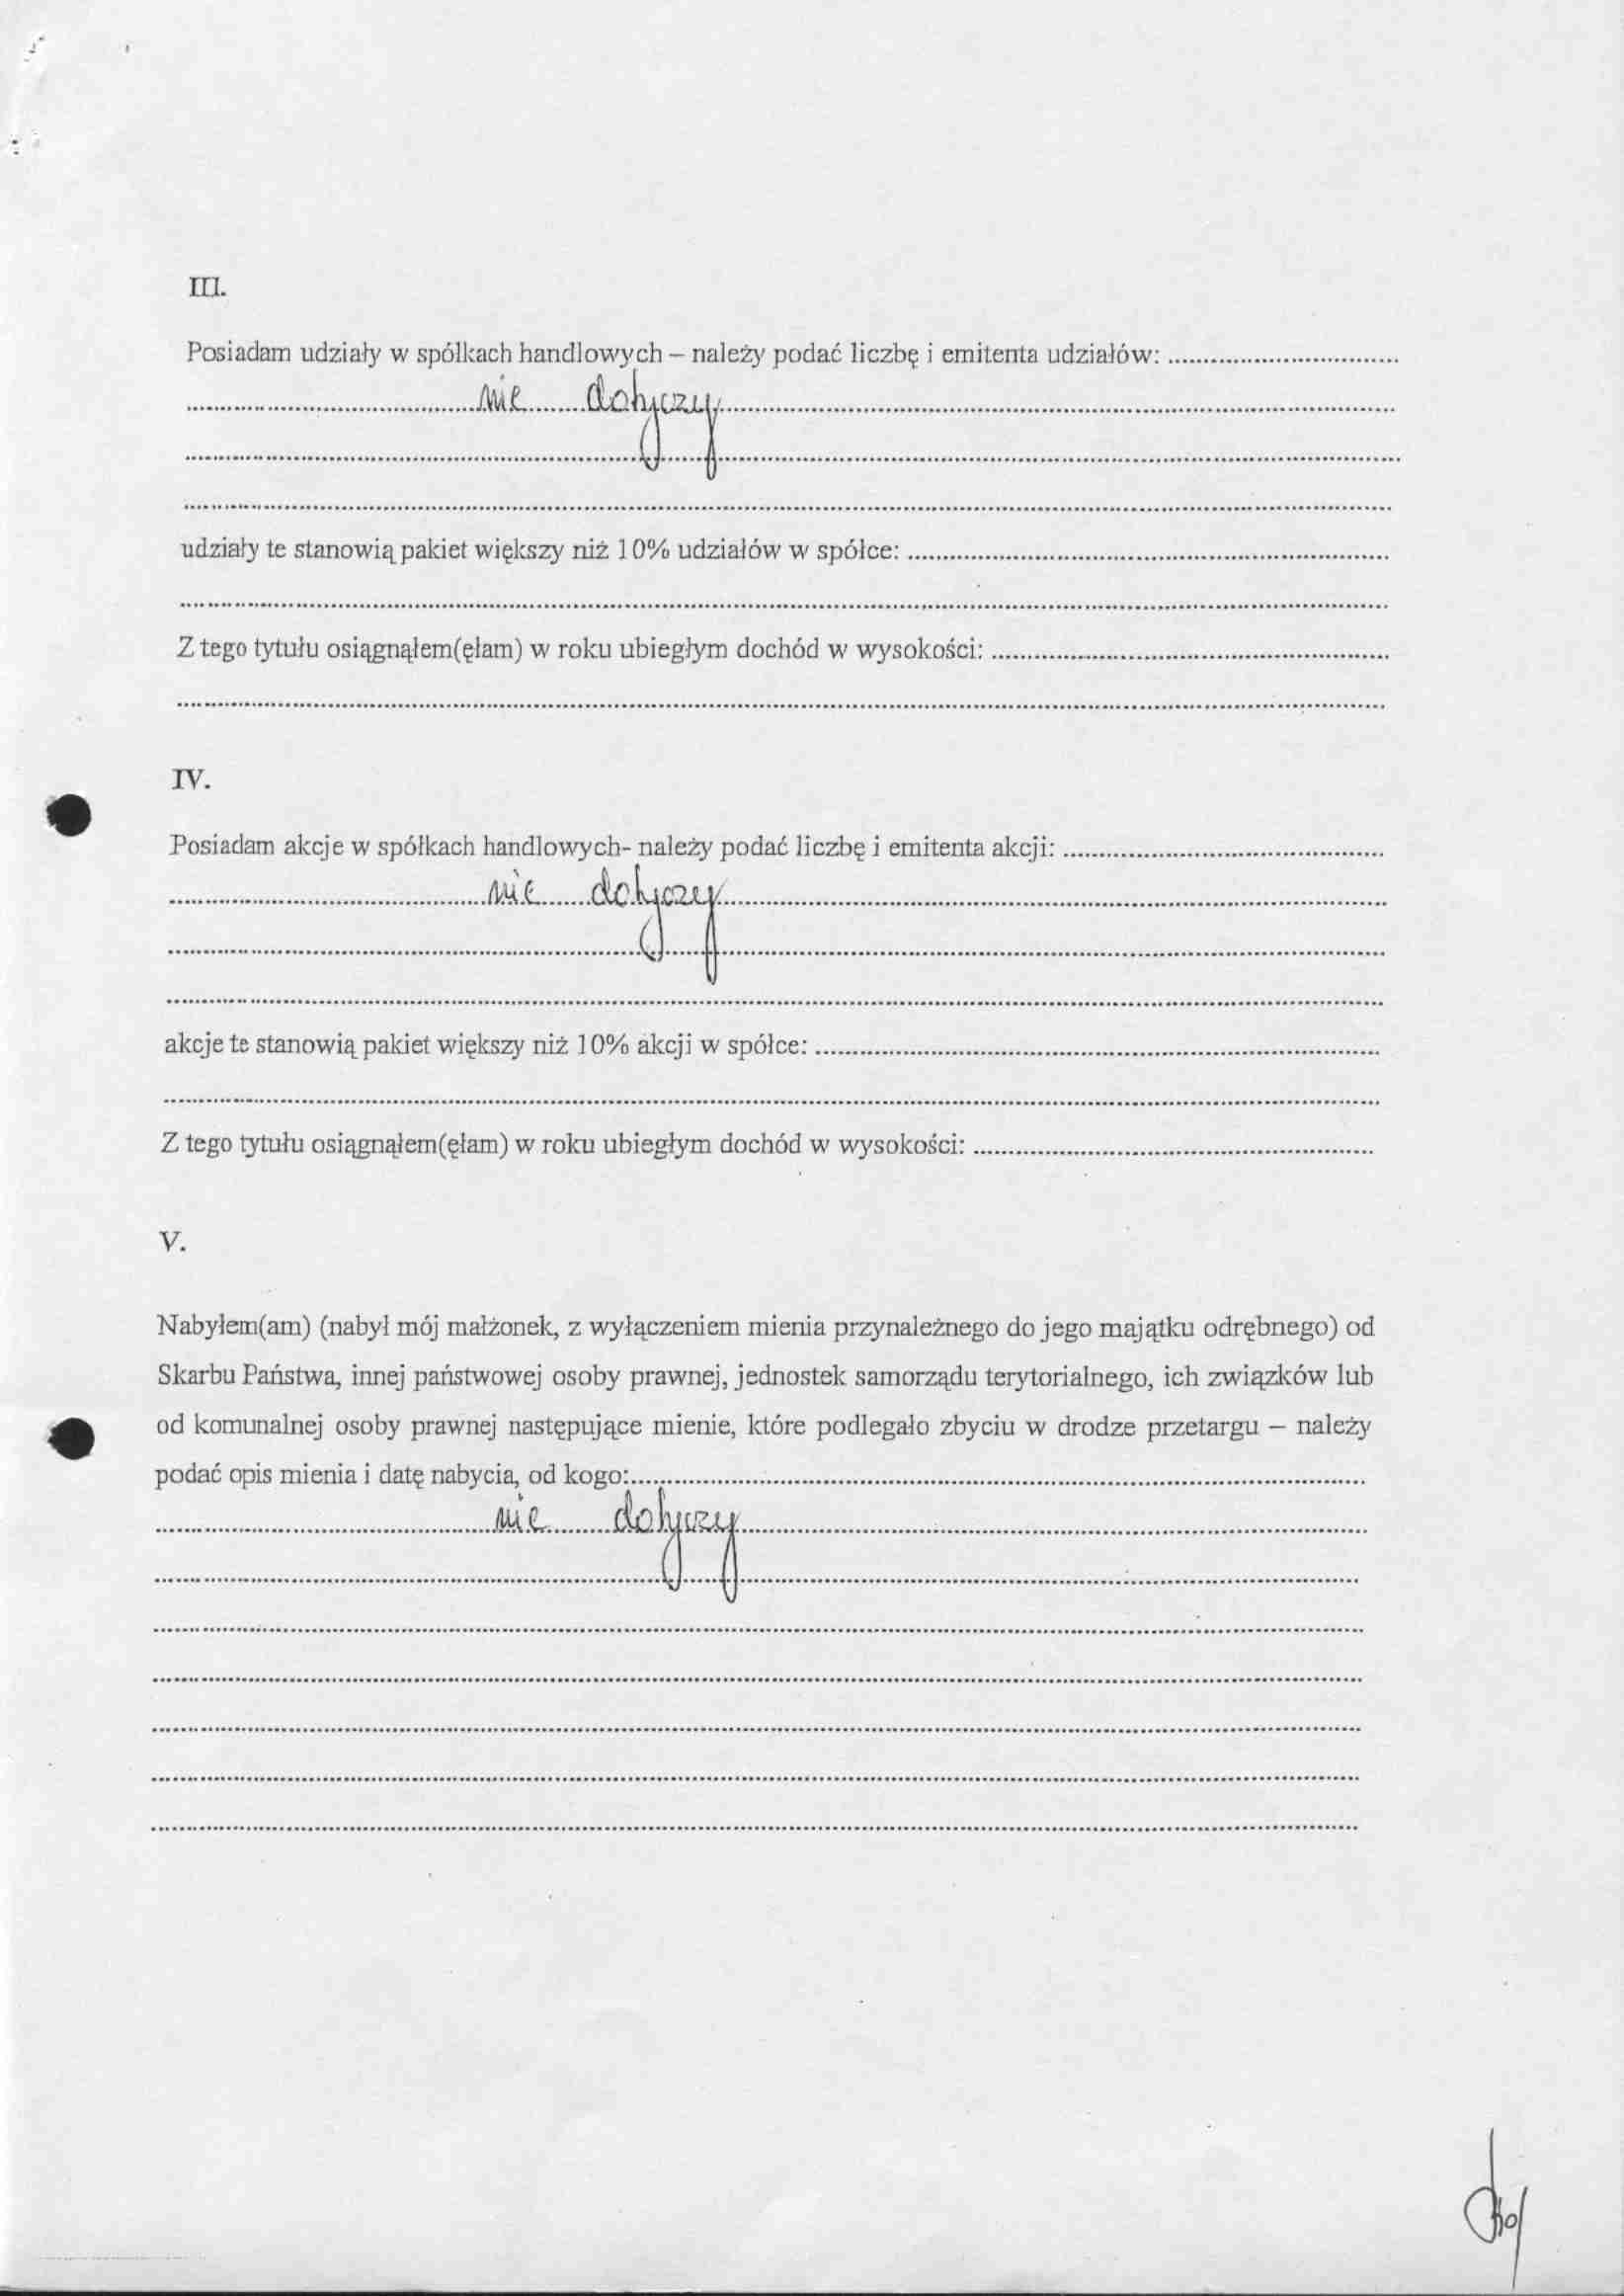 III.
Posiadam udziały w spółkach handlowych – należy podać liczbę i emitenta udziałów: ................................
........................................nie........dotyczy................................................................................
................................................................................................................................
................................................................................................................................
udziały te stanowią pakiet większy niż 10% udziałów w spółce: ................................................................
................................................................................................................................
Z tego tytułu osiągnąłem(ęłam) w roku ubiegłym dochód w wysokości: ........................................................
................................................................................................................................
IV.
Posiadam akcje w spółkach handlowych- należy podać liczbę i emitenta akcji: ............................................
........................................nie........dotyczy................................................................................
................................................................................................................................
................................................................................................................................
akcje te stanowią pakiet większy niż 10% akcji w spółce: ........................................................................
................................................................................................................................
Z tego tytułu osiągnąłem(ęłam) w roku ubiegłym dochód w wysokości: ........................................................
V.
Nabyłem(am) (nabył mój małżonek, z wyłączeniem mienia przynależnego do jego majątku odrębnego) od
Skarbu Państwa, innej państwowej osoby prawnej, jednostek samorządu terytorialnego, ich związków lub
od komunalnej osoby prawnej następujące mienie, które podlegało zbyciu w drodze przetargu – należy
podać opis mienia i datę nabycia, od kogo:................................................................................................
........................................nie........dotyczy................................................................................
................................................................................................................................
................................................................................................................................
................................................................................................................................
................................................................................................................................
................................................................................................................................
................................................................................................................................